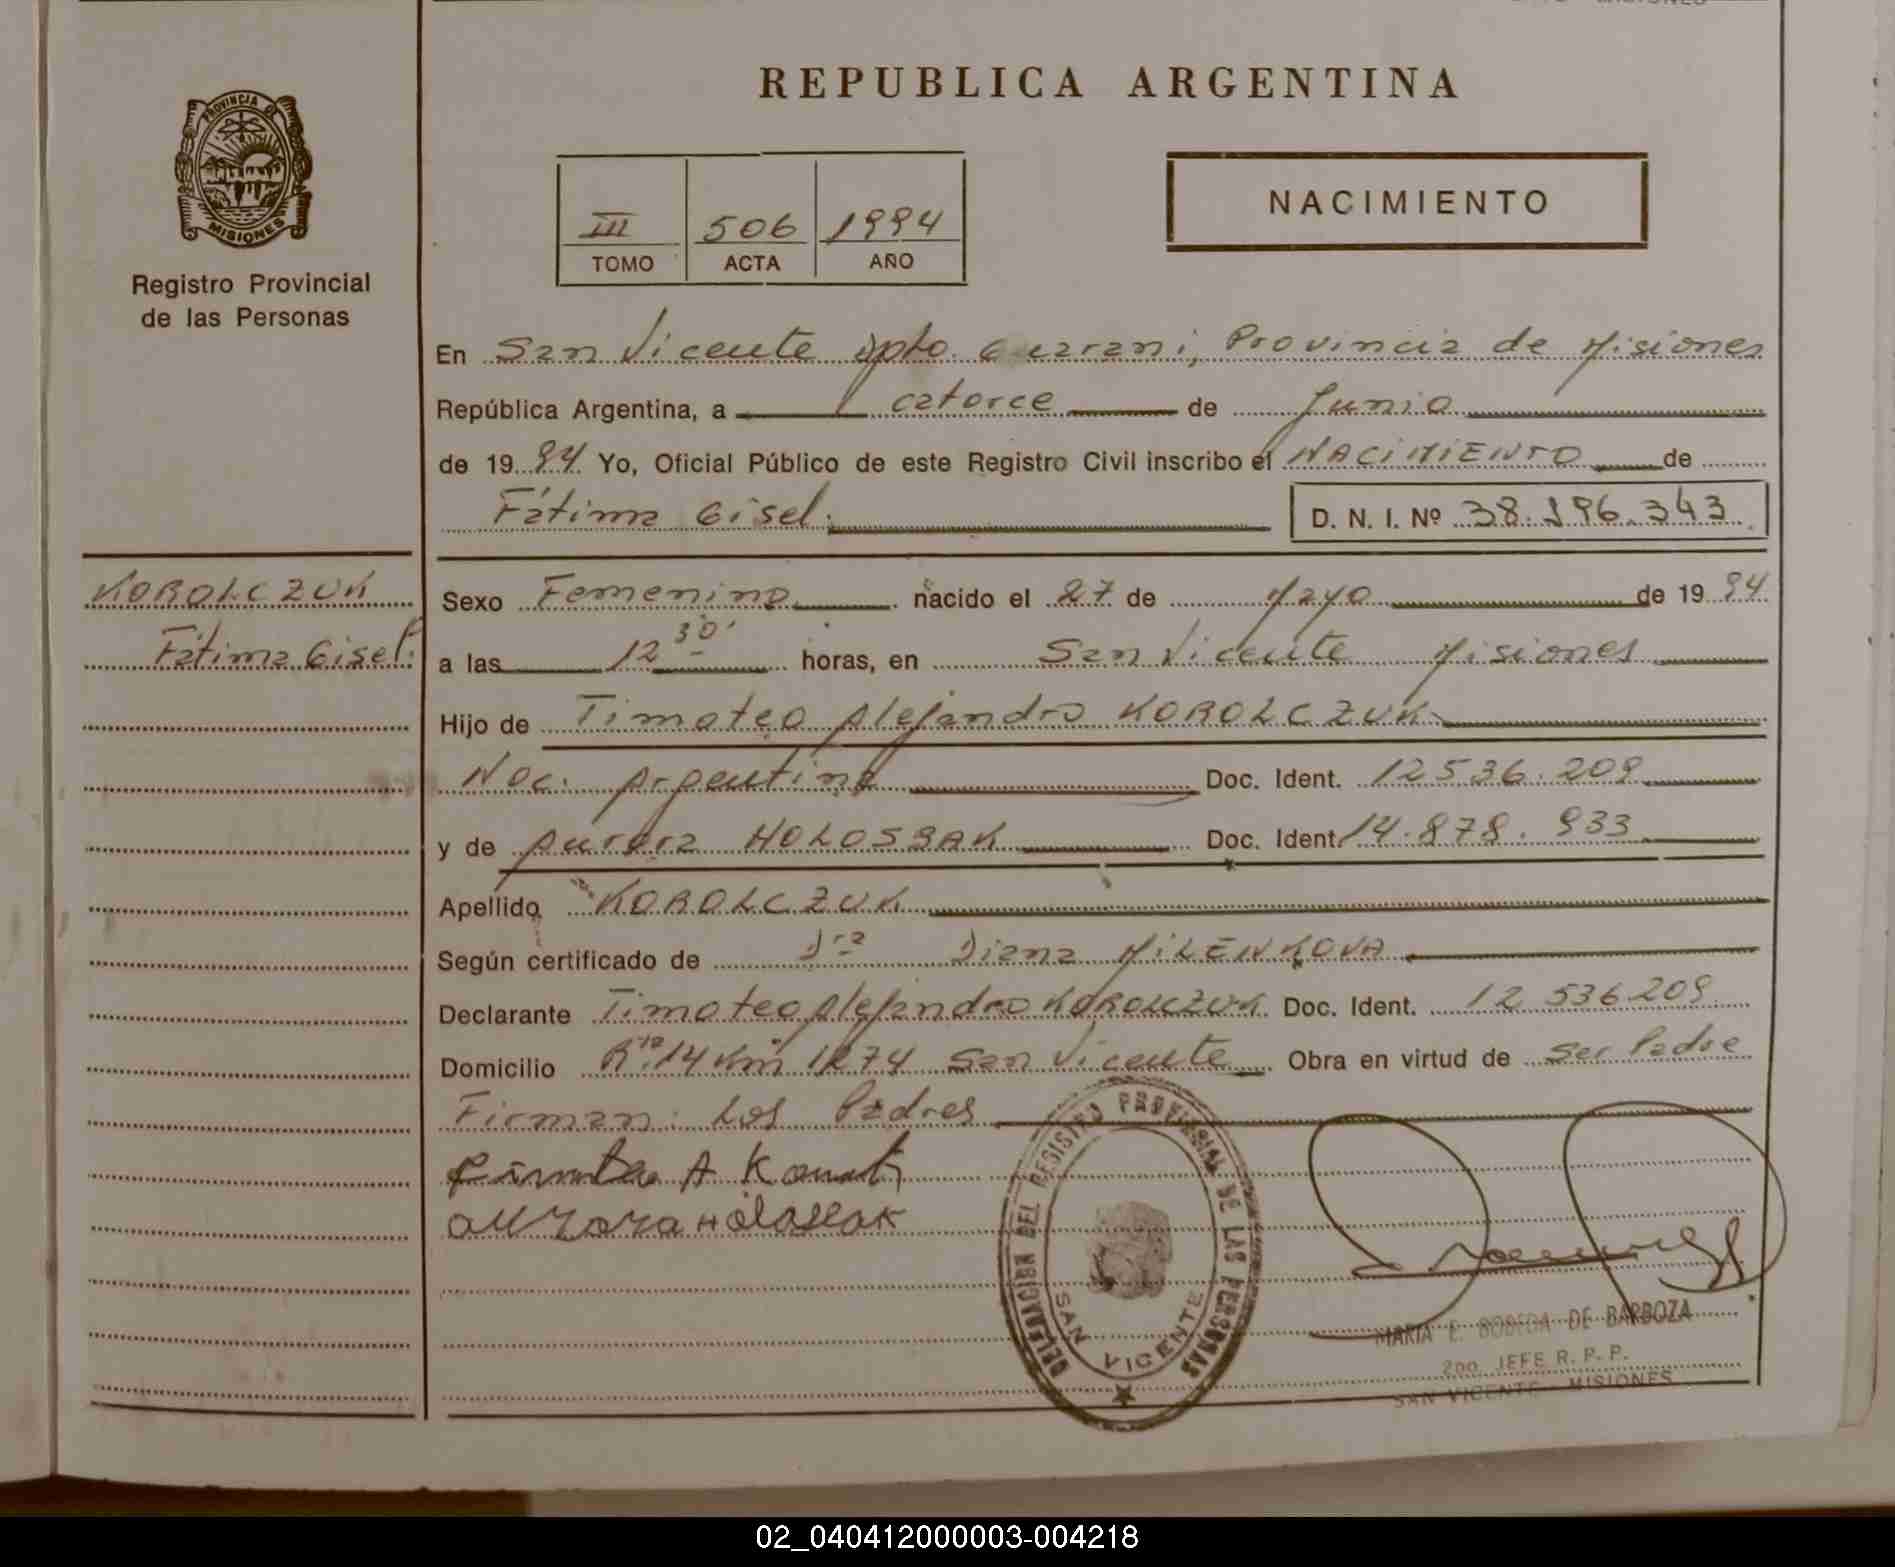 REPUBLICA ARGENTINA
PROVINCIA DE
MISIONES
Registro Provincial
de las Personas
III 506 1994
TOMO ACTA AÑO
NACIMIENTO
En San Vicente Dpto. Guarani, Provincia de Misiones
República Argentina, a catorce de Junio
de 1994 Yo, Oficial Público de este Registro Civil inscribo el NACIMIENTO de
Fátima Gisel. D. N. I. Nº 38.196.343
KOROLCZUK
Fátima Gisel.
Sexo Femenino nacido el 27 de Mayo de 1994
a las 12 30' horas, en San Vicente Misiones
Hijo de Timoteo Alejandro KOROLCZUK
Nac. Argentina Doc. Ident. 12536.209
y de Aurora HOLOSBAK Doc. Ident. 14.878.933
Apellido KOROLCZUK
Según certificado de Dra Diana MILENKOVA
Declarante Timoteo Alejandro KOROLCZUK Doc. Ident. 12.536.209
Domicilio Rta 14 Km 1274 San Vicente Obra en virtud de Ser Padre
Firman: Los Padres
DELEGACION DEL REGISTRO PROVINCIAL DE LAS PERSONAS
SAN VICENTE
MARIA E. BODEDA DE BARBOZA
2do. JEFE R. P. P.
SAN VICENTE - MISIONES
02_040412000003-004218